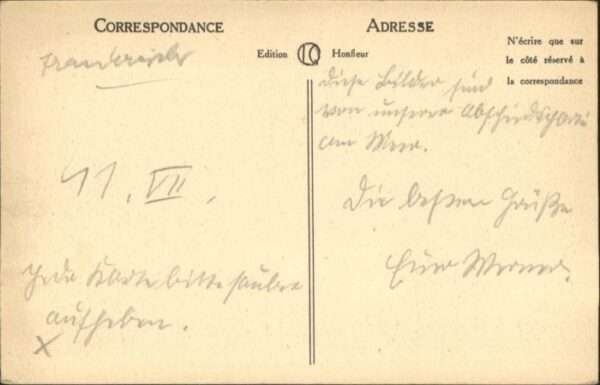 CORRESPONDANCE
ADRESSE
Edition LQ Honfleur
N'écrire que sur
le côté réservé à
la correspondance
Frankreich
41. VII.
Jede Karte bitte sauber
aufheben.
X
Diese Bilder sind
von unserer Abschiedsparty
am Meer.
Die besten Grüße
Euer Werner.